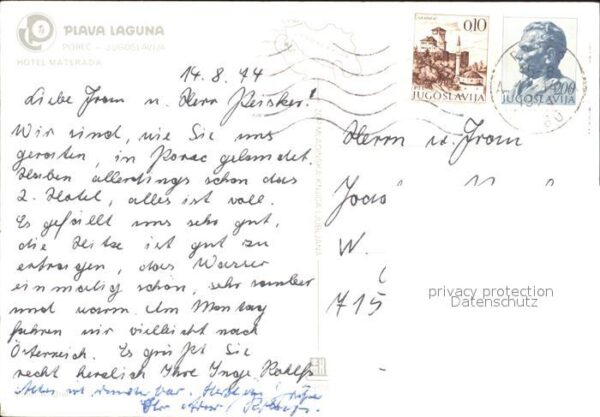 PLAVA LAGUNA
POREČ - JUGOSLAVIJA
HOTEL MATERADA
0,10
JUGOSLAVIJA
2,00
JUGOSLAVIJA
14.8.74
Liebe Frau u. Herr Peisker!
Wir sind, wie Sie uns
geraten, in Porec gelandet.
Haben allerdings schon das
2. Hotel, alles ist voll.
Es gefällt uns sehr gut,
die Hitze ist gut zu
ertragen, das Wasser
einmalig schön, sehr sauber
und warm. Am Montag
fahren wir vielleicht nach
Österreich. Es grüßt Sie
recht herzlich Ihre Inge
Alles ist wunderbar.
Herrn u. Frau
W.
715
privacy protection
Datenschutz